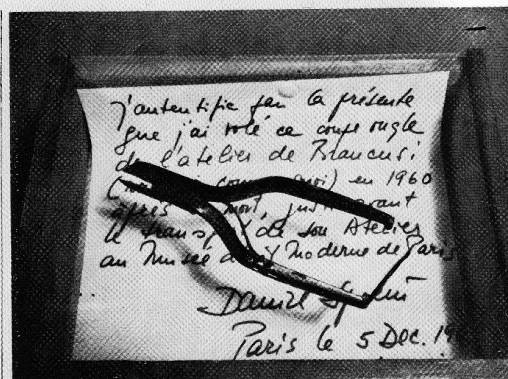 j'autentifie par la présente
que j'ai volé ce coupe ongle
de l'atelier de Brancusi
en 1960
après mort, juste avant
le transfer de son Atelier
au Musée d'art Moderne de Paris
Daniel
Paris le 5 Dec. 19